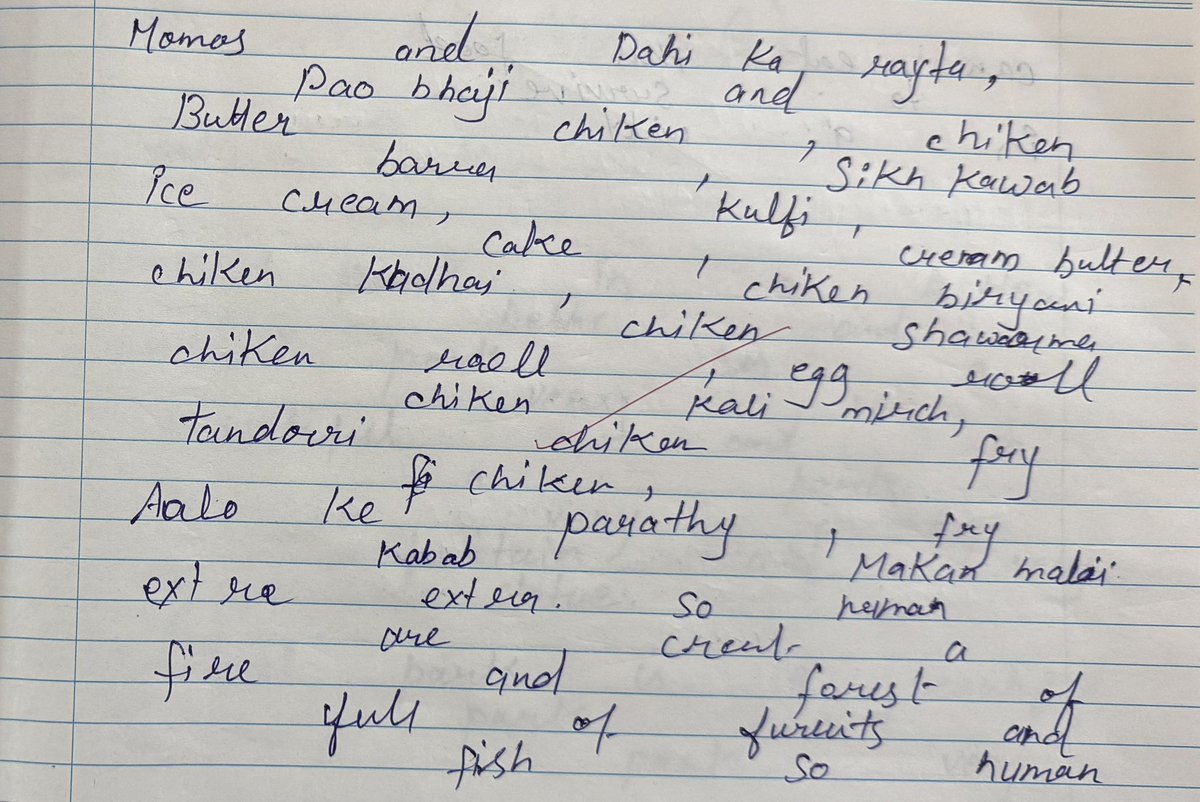 Momos and Dahi Ka rayta,
Pao bhaji and
Butter chiken , chiken
barra , Sikh Kawab
ice cream, Kulfi ,
cake , cream butter,
chiken Kadhai , chiken biryani
chiken shawarma
chiken roll , egg roll
chiken kali mirch,
tandoori chiken fry
chiken ,
Aalo Ke parathy , fry
Kabab Makan malai
extra extra. so human
are creat a
fire and forest of
full of furuits and
fish so human